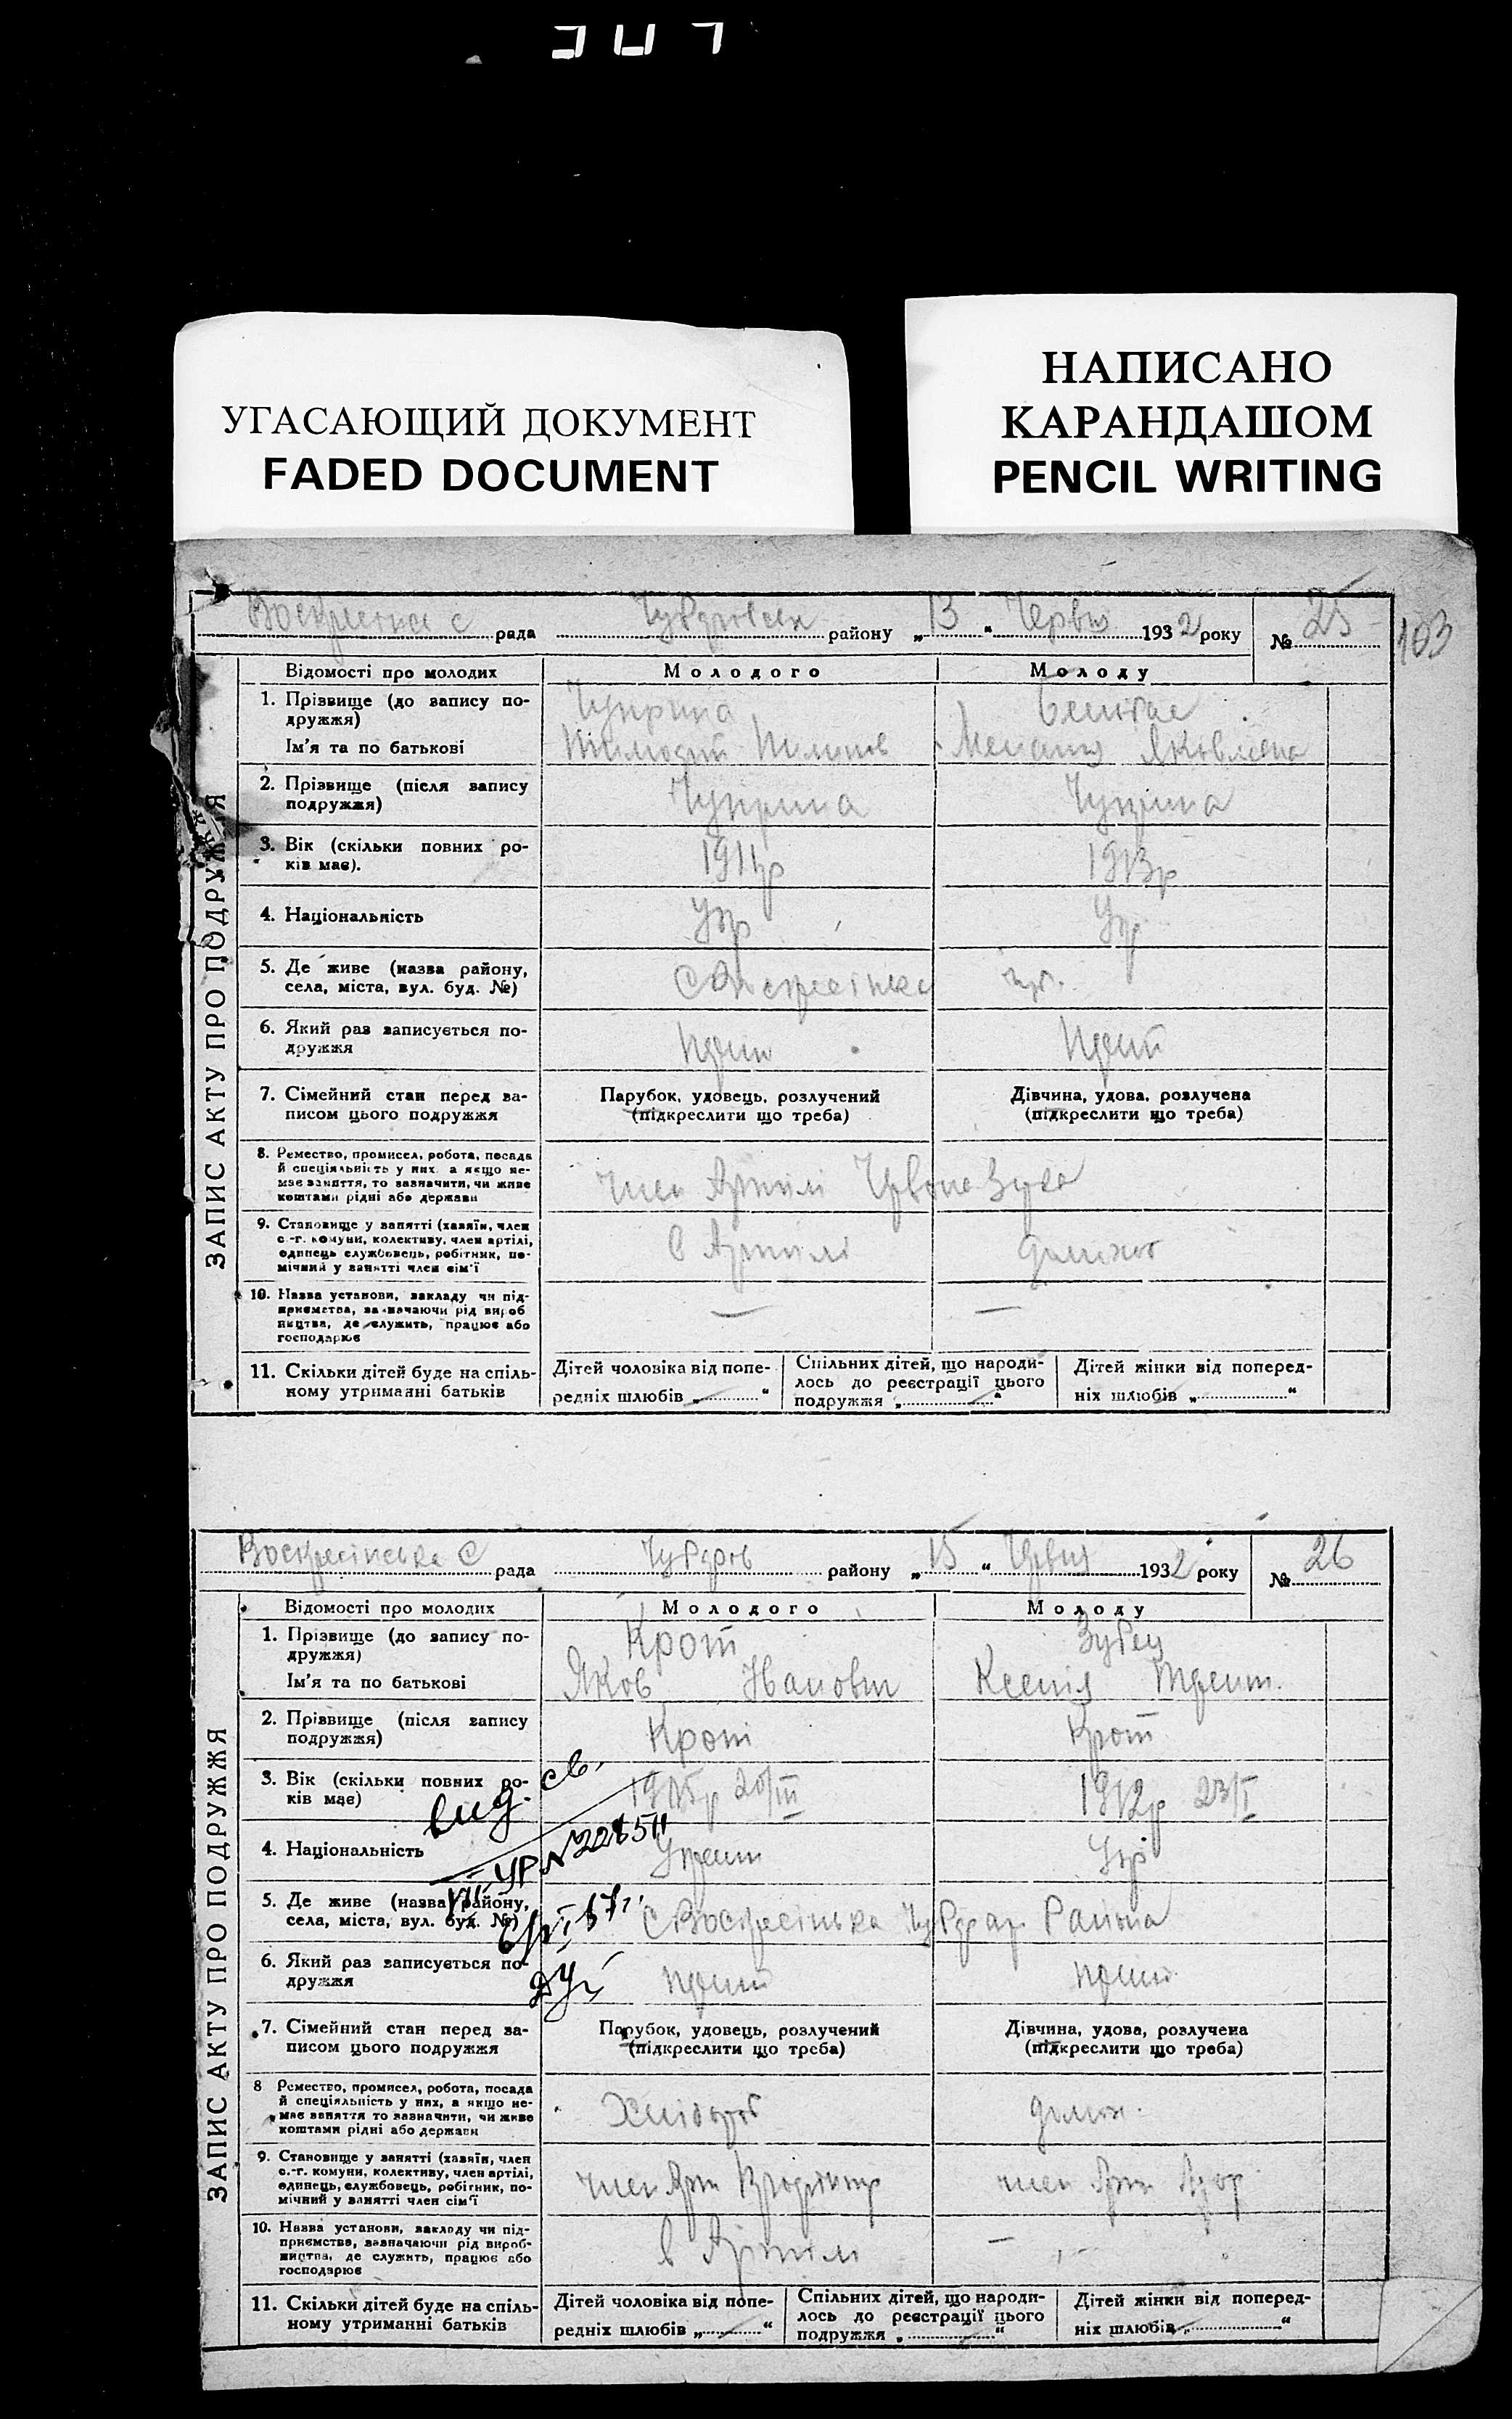 УГАСАЮЩИЙ ДОКУМЕНТ
FADED DOCUMENT
НАПИСАНО
КАРАНДАШОМ
PENCIL WRITING
103
рада району „13“ Червня 1932 року № 25
ЗАПИС АКТУ ПРО ПОДРУЖЖЯ
Відомості про молодих Молодого Молоду
1. Прізвище (до запису по-
дружжя) Чуприна
Ім'я та по батькові Яковлевна
2. Прізвище (після запису
подружжя) Чуприна Чуприна
3. Вік (скільки повних ро-
ків має). 1911р 1913р
4. Національність Укр Укр
5. Де живе (назва району,
села, міста, вул. буд. №)
6. Який раз записується по-
дружжя
7. Сімейний стан перед за-
писом цього подружжя
Парубок, удовець, розлучений
(підкреслити що треба)
Дівчина, удова, розлучена
(підкреслити що треба)
8. Ремество, промисел, робота, посада
й спеціяльність у них а якщо не-
має заняття, то зазначити, чи живе
коштами рідні або держави
член Артилі
9. Становище у занятті (хазяїн, член
с.-г. комуни, колективу, член артілі,
одинець службовець, робітник, по-
мічний у занятті член сім'ї
в Артилі
10. Назва установи, закладу чи під-
приємства, зазначаючи рід вироб
ництва, де служить, працює або
господарює
— —
11. Скільки дітей буде на спіль-
ному утриманні батьків
Дітей чоловіка від попе-
редніх шлюбів „ “
Спільних дітей, що народи-
лось до реєстрації цього
подружжя „ “
Дітей жінки від поперед-
ніх шлюбів „ “
Воскресінська С рада району „15“ Червня 1932 року № 26
ЗАПИС АКТУ ПРО ПОДРУЖЖЯ
Відомості про молодих Молодого Молоду
1. Прізвище (до запису по-
дружжя) Крот Зубец
Ім'я та по батькові Яков Иванович Ксенія
2. Прізвище (після запису
подружжя) Крот Крот
3. Вік (скільки повних ро-
ків має) 20/III 1912р 23/I
вид. св.
4. Національність Укр
5. Де живе (назва району,
села, міста, вул. буд. №) С Воскресінька Района
6. Який раз записується по-
дружжя
7. Сімейний стан перед за-
писом цього подружжя
Парубок, удовець, розлучений
(підкреслити що треба)
Дівчина, удова, розлучена
(підкреслити що треба)
8 Ремество, промисел, робота, посада
й спеціяльність у них, а якщо не-
має заняття то зазначити, чи живе
коштами рідні або держави
Хлібороб
9. Становище у занятті (хазяїн, член
с.-г. комуни, колективу, член артілі,
одинець, службовець, робітник, по-
мічний у занятті член сім'ї
член Арт член Арт
10. Назва установи, закладу чи під-
приємства, зазначаючи рід вироб-
ництва, де служить, працює або
господарює
в Артилі —
11. Скільки дітей буде на спіль-
ному утриманні батьків
Дітей чоловіка від попе-
редніх шлюбів „ “
Спільних дітей, що народи-
лось до реєстрації цього
подружжя „ “
Дітей жінки від поперед-
ніх шлюбів „ “